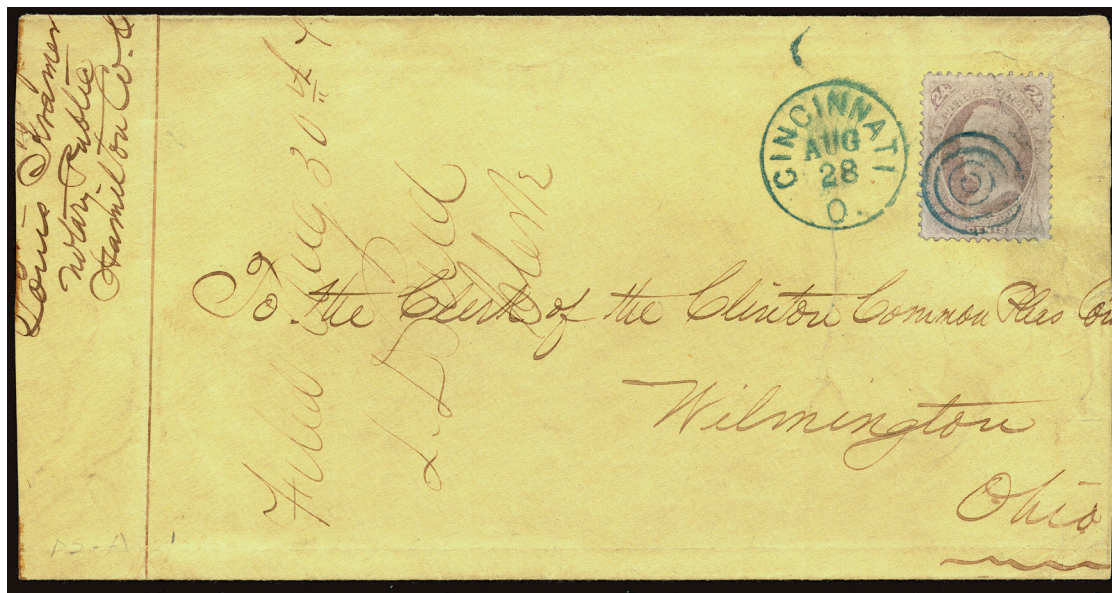 Louis Kramer
Notary Public
Hamilton Co. O
Filed Aug 30th
Clerk
CINCINNATI
AUG
28
O.
24 24
CENTS
To. the Clerk of the Clinton Common Pleas Cou
Wilmington
Ohio